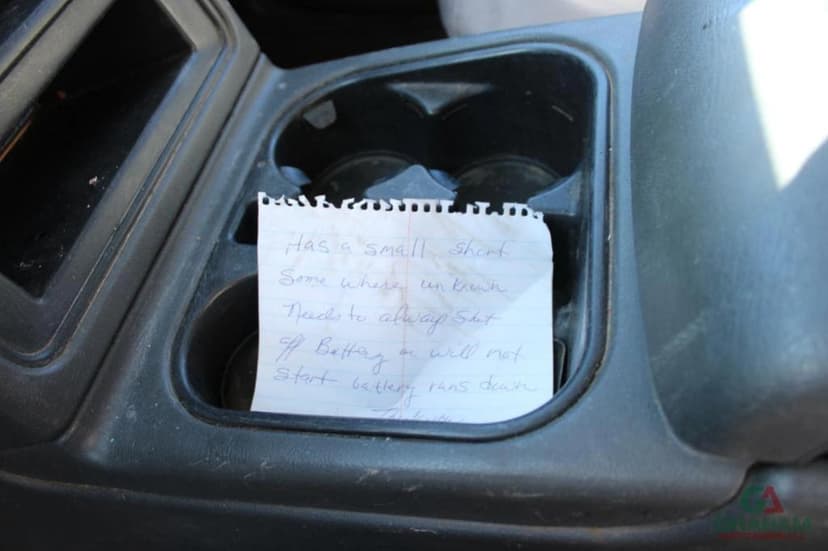 Has a small short
Some where unknown
Needs to alway shut
off Battery or will not
start battery runs down
GRAHAM